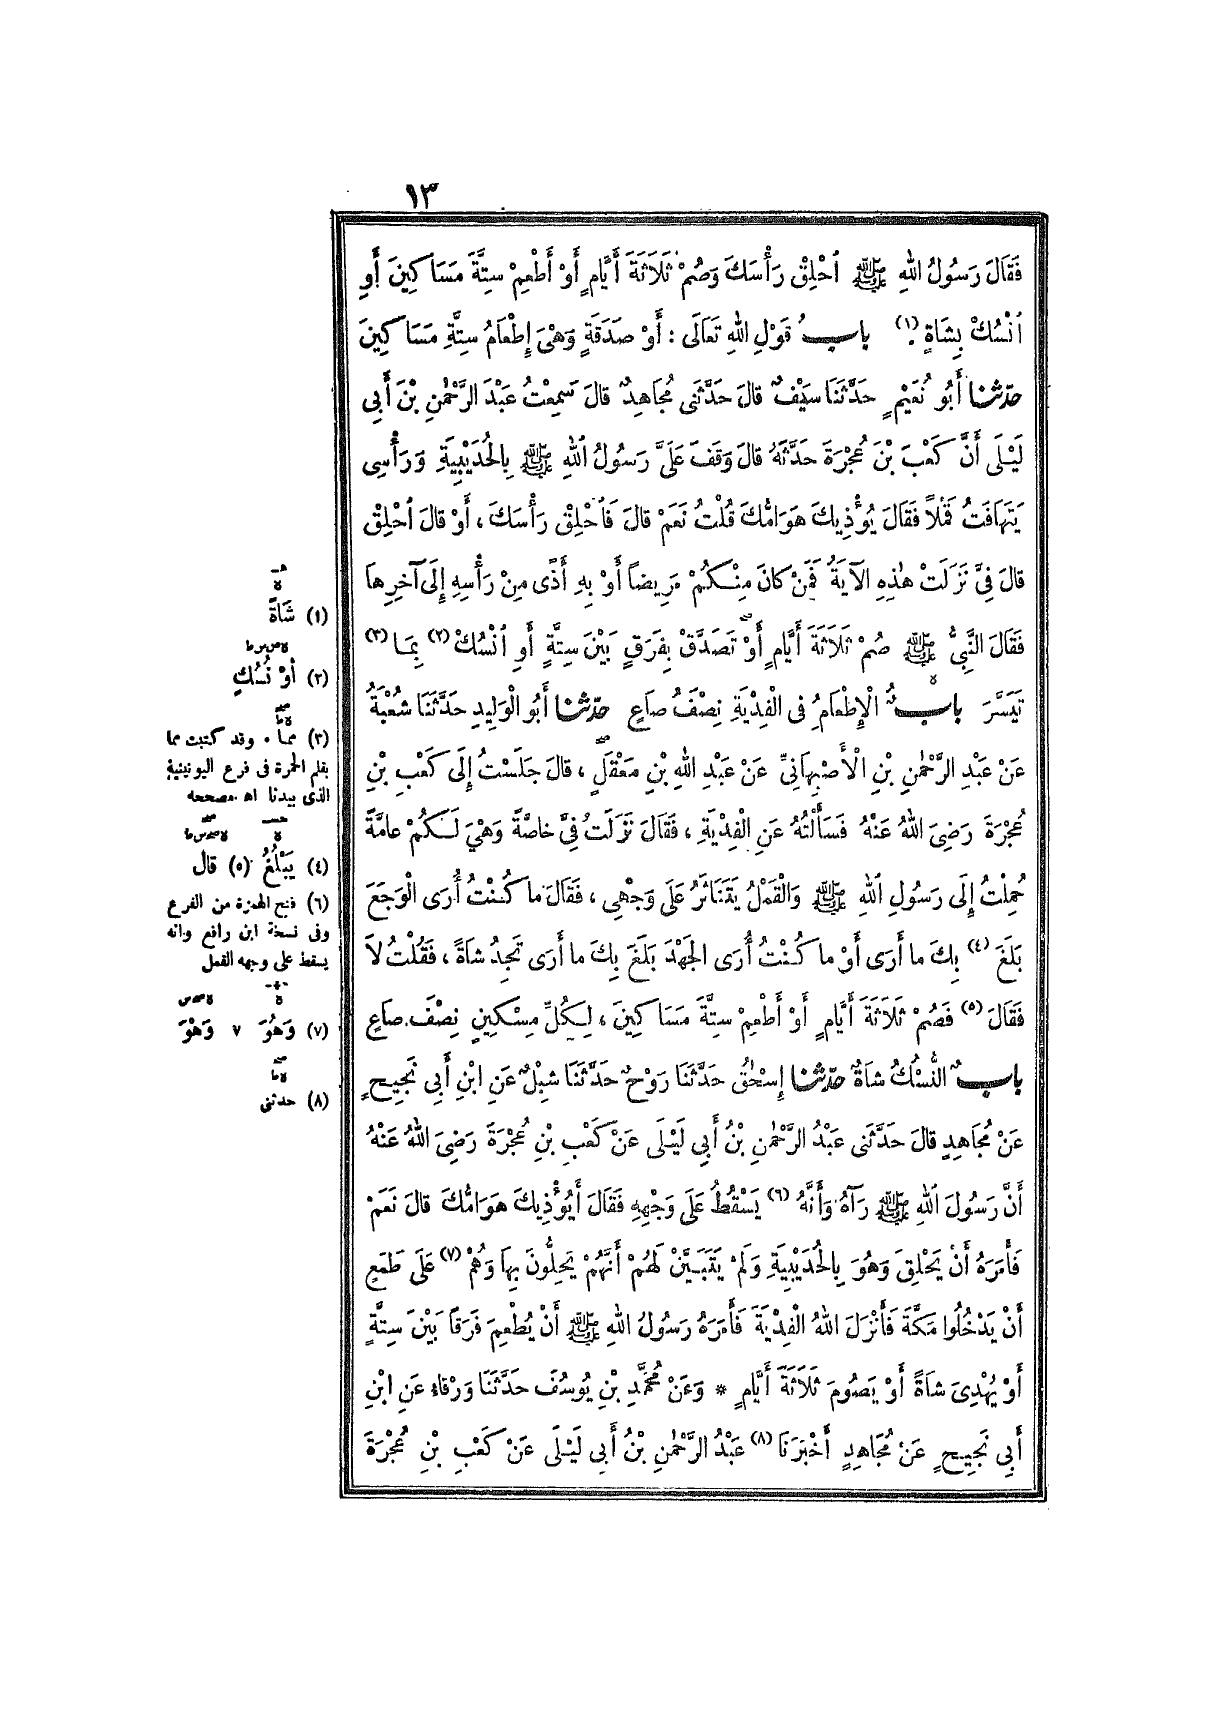 ١٣
فَقَالَ رَسُولُ اللهِ ﷺ ٱحْلِقْ رَأْسَكَ وَصُمْ ثَلَاثَةَ أَيَّامٍ أَوْ أَطْعِمْ سِتَّةَ مَسَاكِينَ أَوِ
ٱنْسُكْ بِشَاةٍ (١) بابُ قَوْلِ اللهِ تَعَالَى : أَوْ صَدَقَةٍ وَهْىَ إِطْعَامُ سِتَّةِ مَسَاكِينَ
حدّثنا أَبُو نُعَيْمٍ حَدَّثَنَا سَيْفٌ قالَ حَدَّثَنِى مُجَاهِدٌ قالَ سَمِعْتُ عَبْدَ الرَّحْمٰنِ بْنَ أَبِى
لَيْلَى أَنَّ كَعْبَ بْنَ عُجْرَةَ حَدَّثَهُ قالَ وَقَفَ عَلَىَّ رَسُولُ ٱللهِ ﷺ بِالْحُدَيْبِيَةِ وَرَأْسِى
يَتَهَافَتُ قَمْلاً فَقَالَ يُؤْذِيكَ هَوَامُّكَ قُلْتُ نَعَمْ قالَ فَٱحْلِقْ رَأْسَكَ ، أَوْ قالَ ٱحْلِقْ
قالَ فِىَّ نَزَلَتْ هٰذِهِ الآيَةُ فَمَنْ كانَ مِنْكُمْ مَرِيضاً أَوْ بِهِ أَذًى مِنْ رَأْسِهِ إِلَى آخِرِهَا
فَقَالَ النَّبِىُّ ﷺ صُمْ ثَلَاثَةَ أَيَّامٍ أَوْ تَصَدَّقْ بِفَرَقٍ بَيْنَ سِتَّةٍ أَوِ ٱنْسُكْ (٢) بِمَا (٣)
تَيَسَّرَ بابُ الْإِطْعَامُ فِى الْفِدْيَةِ نِصْفُ صَاعٍ حدّثنا أَبُو الْوَلِيدِ حَدَّثَنَا شُعْبَةُ
عَنْ عَبْدِ الرَّحْمٰنِ بْنِ الْأَصْبِهَانِىِّ عَنْ عَبْدِ اللهِ بْنِ مَعْقَلٍ ، قالَ جَلَسْتُ إِلَى كَعْبِ بْنِ
عُجْرَةَ رَضِىَ اللهُ عَنْهُ فَسَأَلْتُهُ عَنِ الْفِدْيَةِ ، فَقَالَ نَزَلَتْ فِىَّ خاصَّةً وَهْىَ لَكُمْ عامَّةً
حُمِلْتُ إِلَى رَسُولِ ٱللهِ ﷺ وَالْقَمْلُ يَتَنَاثَرُ عَلَى وَجْهِى ، فَقَالَ ما كُنْتُ أُرَى الْوَجَعَ
بَلَغَ (٤) بِكَ ما أَرَى أَوْ ما كُنْتُ أُرَى الْجَهْدَ بَلَغَ بِكَ ما أَرَى تَجِدُ شَاةً ، فَقُلْتُ لاَ
فَقَالَ (٥) فَصُمْ ثَلَاثَةَ أَيَّامٍ أَوْ أَطْعِمْ سِتَّةَ مَسَاكِينَ ، لِكُلِّ مِسْكِينٍ نِصْفَ صَاعٍ
بابٌ النُّسْكُ شَاةٌ حدّثنا إِسْحٰقُ حَدَّثَنَا رَوْحٌ حَدَّثَنَا شِبْلٌ عَنِ ابْنِ أَبِى نَجِيحٍ
عَنْ مُجَاهِدٍ قالَ حَدَّثَنِى عَبْدُ الرَّحْمٰنِ بْنُ أَبِى لَيْلَى عَنْ كَعْبِ بْنِ عُجْرَةَ رَضِىَ اللهُ عَنْهُ
أَنَّ رَسُولَ ٱللهِ ﷺ رَآهُ وَأَنَّهُ (٦) يَسْقُطُ عَلَى وَجْهِهِ فَقَالَ أَيُؤْذِيكَ هَوَامُّكَ قالَ نَعَمْ
فَأَمَرَهُ أَنْ يَحْلِقَ وَهُوَ بِالْحُدَيْبِيَةِ وَلَمْ يَتَبَيَّنْ لَهُمْ أَنَّهُمْ يَحِلُّونَ بِهَا وَهُمْ (٧) عَلَى طَمَعٍ
أَنْ يَدْخُلُوا مَكَّةَ فَأَنْزَلَ اللهُ الْفِدْيَةَ فَأَمَرَهُ رَسُولُ اللهِ ﷺ أَنْ يُطْعِمَ فَرَقًا بَيْنَ سِتَّةٍ
أَوْ يُهْدِىَ شَاةً أَوْ يَصُومَ ثَلَاثَةَ أَيَّامٍ * وَعَنْ مُحَمَّدِ بْنِ يُوسُفَ حَدَّثَنَا وَرْقاءُ عَنِ ابْنِ
أَبِى نَجِيحٍ عَنْ مُجَاهِدٍ أَخْبَرَنَا (٨) عَبْدُ الرَّحْمٰنِ بْنُ أَبِى لَيْلَى عَنْ كَعْبِ بْنِ عُجْرَةَ
(١) شَاةً
(٢) أَوْ نُسُكٍ
(٣) مما . وقد كتبت مما
بقلم الحمرة فى فرع اليونينية
الذى بيدنا اه مصححه
(٤) يَبْلُغُ (٥) قال
(٦) فتح الهمزة من الفرع
وفى نسخة ابن رافع وانه
يسقط على وجهه القمل
(٧) وَهُوَ ٧ وَهْوَ
(٨) حدثنى